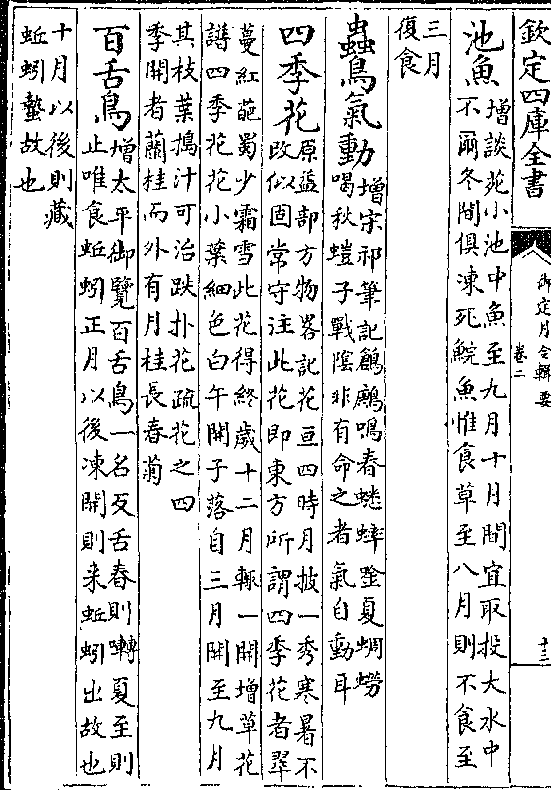 欽定四庫全書
御定月令輯要
卷二
池魚
增談苑小池中魚至九月十月間宜取投大水中
不爾冬間俱凍死鯇魚惟食草至八月則不食至
三月
復食
蟲鳥氣動
增宋祁筆記鶬鶊鳴春蟋蟀唫夏蜩蟧
喝秋螘子戰陰非有命之者氣自動耳
四季花
原益部方物畧記花亘四時月披一秀寒暑不
改似固常守注此花即東方所謂四季花者翠
蔓紅葩蜀少霜雪此花得終歲十二月輒一開增草花
譜四季花花小葉細色白午開子落自三月開至九月
其枝葉搗汁可治跌扑花疏花之四
季開者蘭桂而外有月桂長春菊
百舌鳥
增太平御覽百舌鳥一名反舌春則囀夏至則
止唯食蚯蚓正月以後凍開則来蚯蚓出故也
十月以後則藏
蚯蚓蟄故也